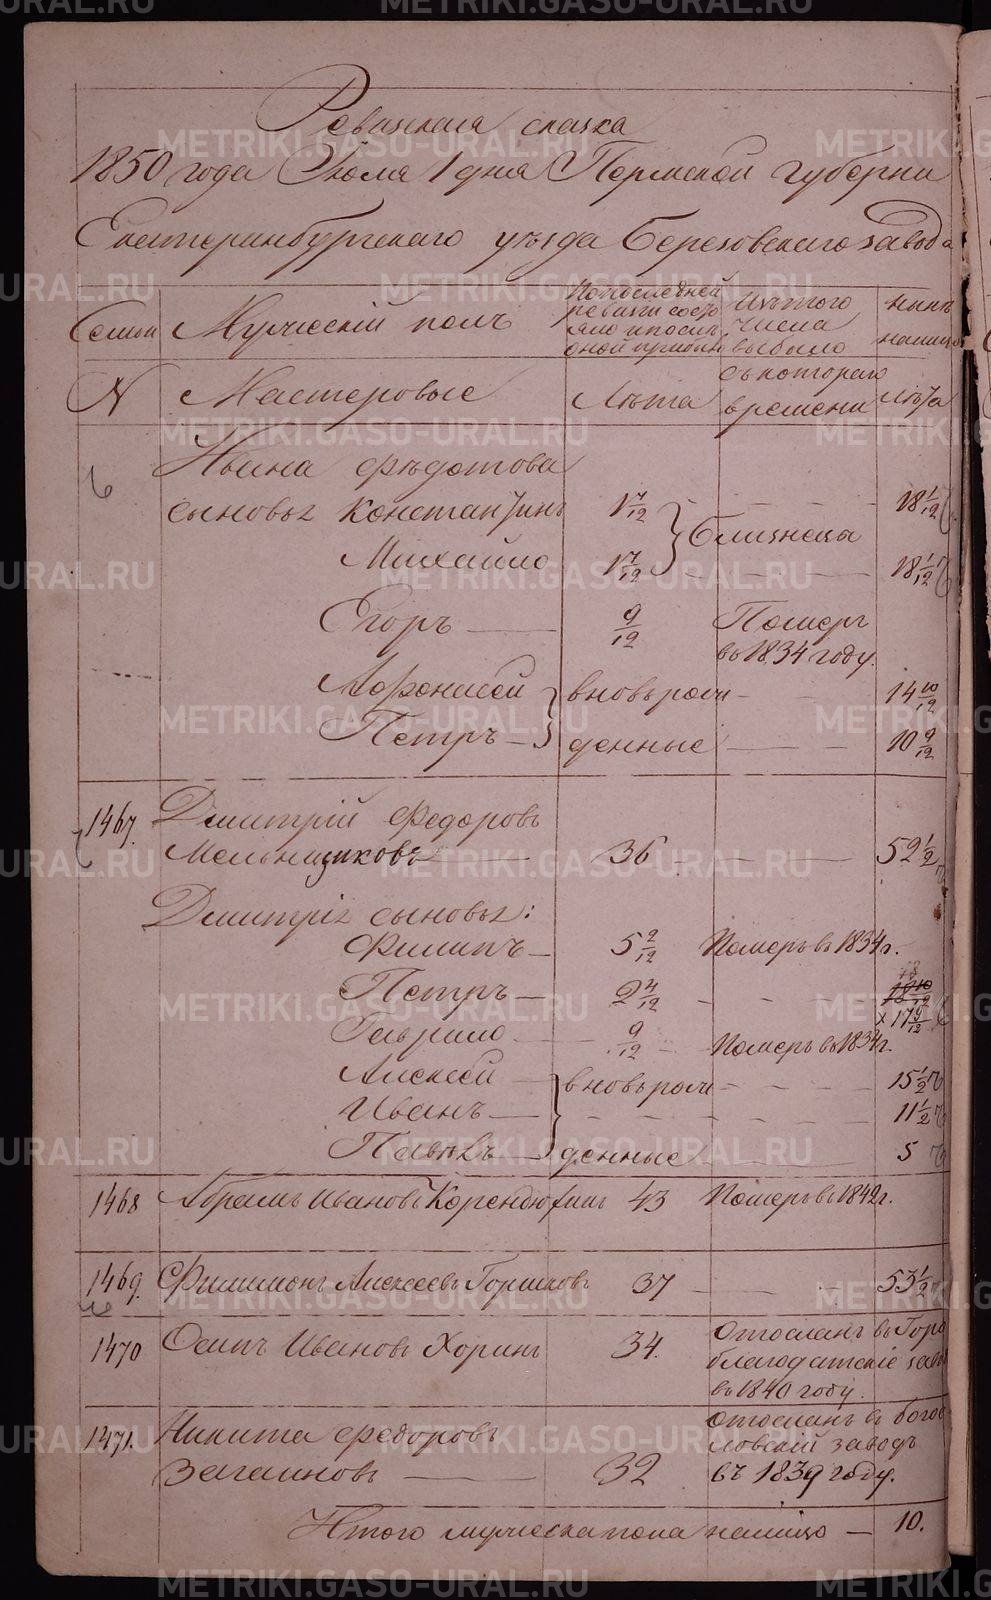 Ревизская сказка
1850 года Июля 1 дня Пермской губернии
Екатеринбургскаго уѣзда Березовскаго завода
Семьи
Мужескій полъ
По последней ревизіи состояло и после оной прибыло
Изъ того числа выбыло
Нынѣ налицо
N
Мастеровые
Лѣта
съ котораго времени
Лѣта
Ивана Ѳедотова
сыновья Константинъ 1 7/12 } Близнецы 18 1/12
Михайло 1 7/12 18 1/12
Егоръ — 9/12 Померъ
въ 1834 году.
Афонасей } вновь рож- 14 10/12
Петръ — денные 10 9/12
1467. Дмитрій Федоровъ
Мельщиковъ — 36 — 52 1/2
Дмитрія сыновья:
Филипъ — 5 2/12 Померъ въ 1834 г.
Петръ — 2 4/12
17 9/12
Гаврило 9/12 Померъ въ 1834 г.
Алексей — вновь рож- 15 1/2
Иванъ — 11 1/2
Павелъ — денные 5
1468 Абрамъ Ивановъ 43 Померъ въ 1842 г.
1469. Филимонъ Алексеевъ Горшковъ 37 53 1/2
1470 Осипъ Ивановъ Хоринъ 34. Отосланъ въ Горо
благодатскіе зав
въ 1840 году.
1471. Никита Федоровъ отосланъ въ Богос
Загаиновъ — 32 ловскій заводъ
въ 1839 году.
Итого мужеска пола налицо — 10.
METRIKI.GASO-URAL.RU